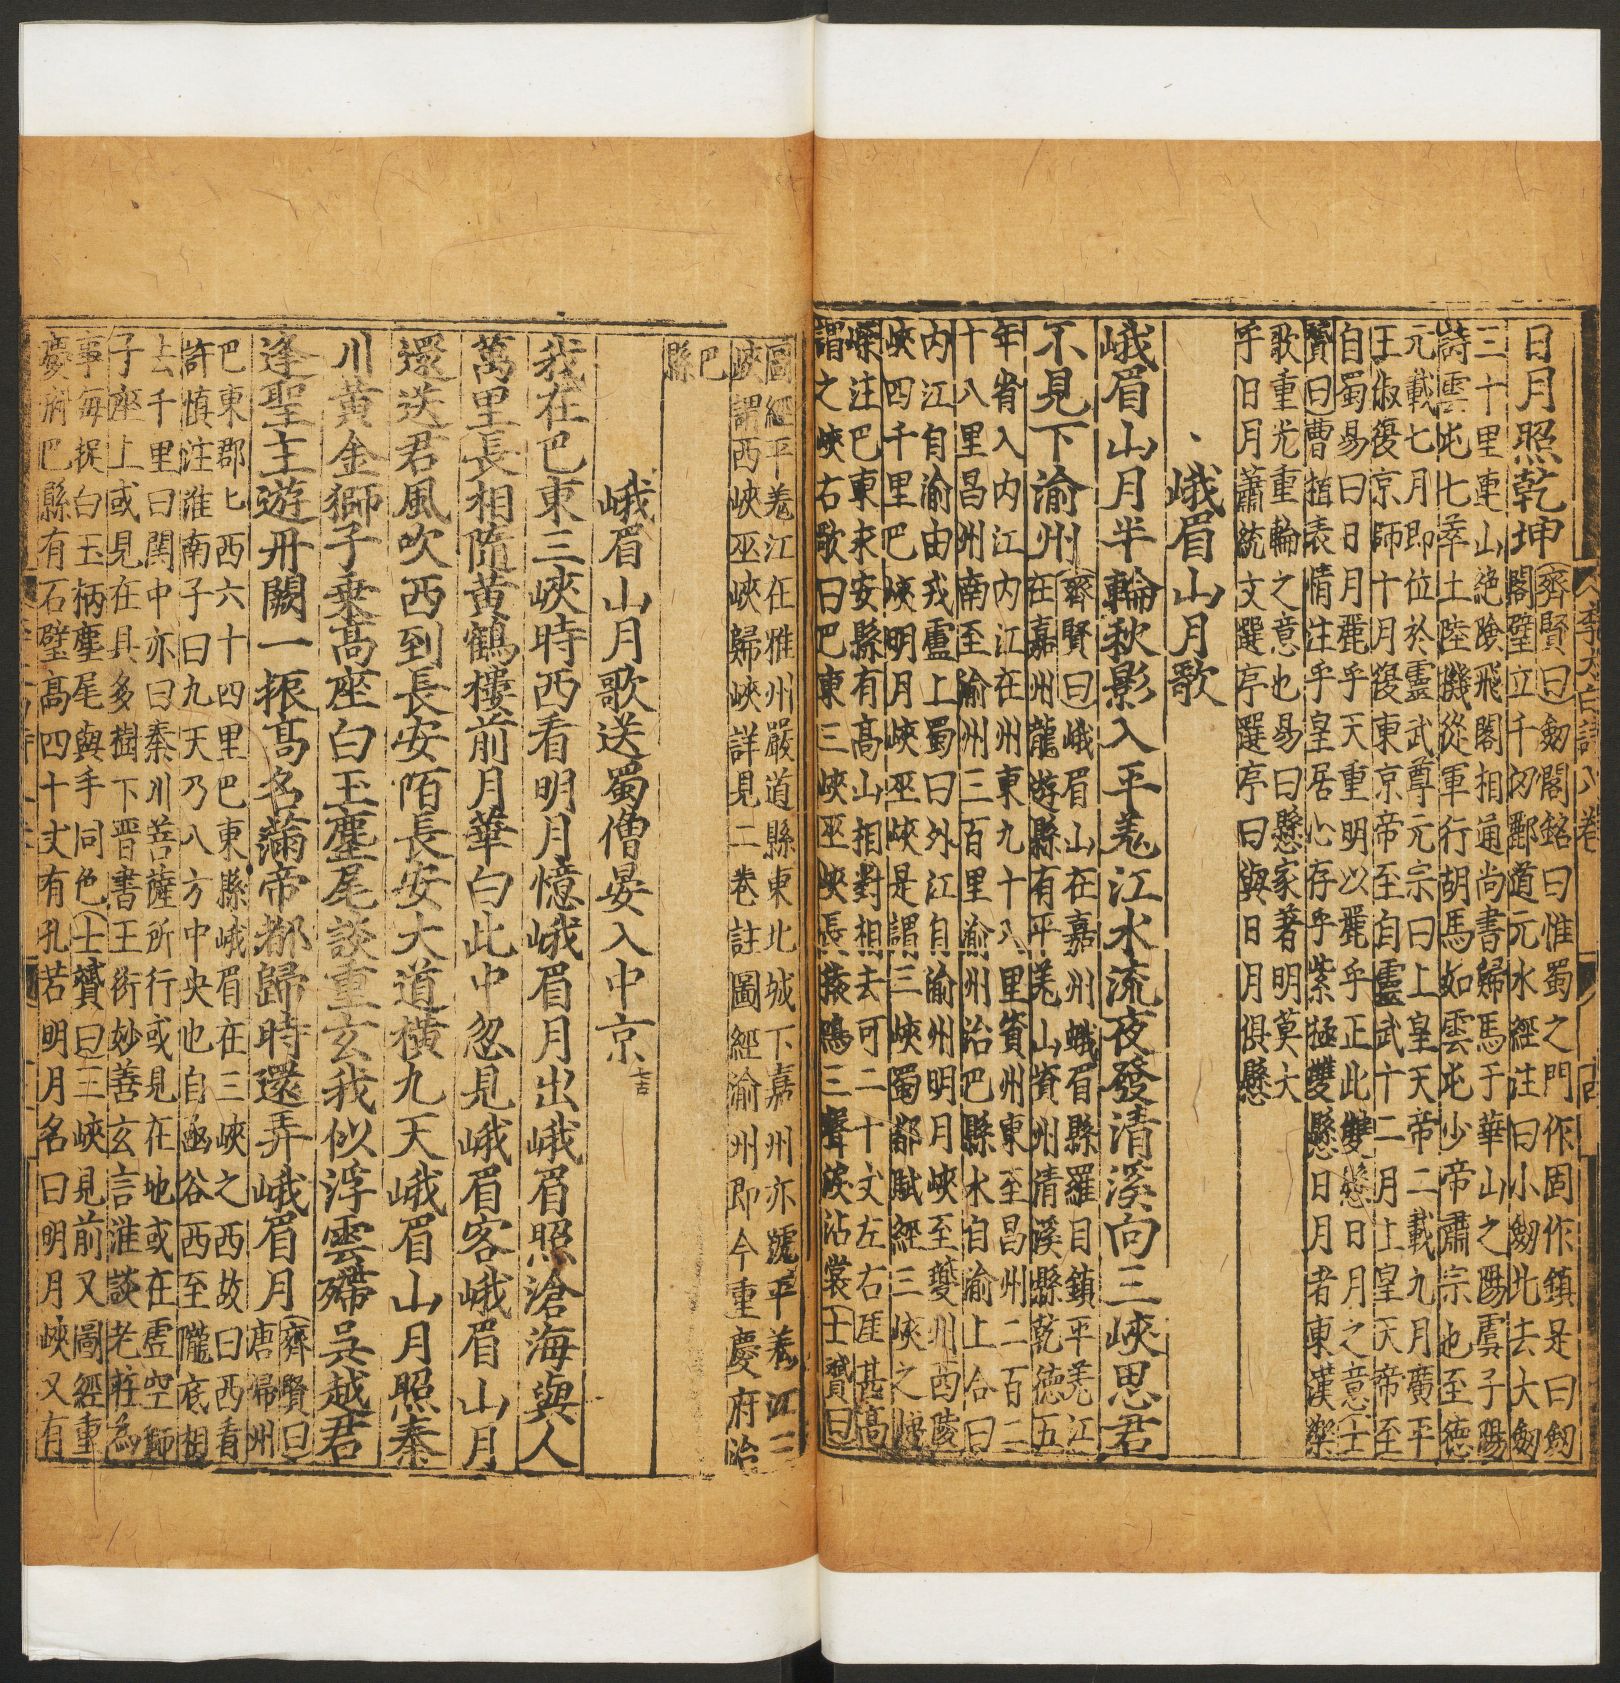 李太白詩八卷
日月照乾坤
齊賢曰劒閣銘曰惟蜀之門作固作鎮是曰劒
閣壁立千仞酈道元水經注曰小劒北去大劒
三十里連山絶險飛閣相通尚書歸馬于華山之陽虞子陽
詩雲屯七萃土陸機從軍行胡馬如雲屯少帝肅宗也至德
元載七月即位於靈武尊元宗曰上皇天帝二載九月廣平
王俶復京師十月復東京帝至自靈武十二月上皇天帝至
自蜀易曰日月麗乎天重明以麗乎正此雙懸日月之意士
贇曰曹植表情注乎皇居心存乎紫極雙懸日月者東漢樂
歌重光重輪之意也易曰懸象著明莫大
乎日月蕭統文選亭選亭曰與日月俱懸
峨眉山月歌
峨眉山月半輪秋影入平羌江水流夜發清溪向三峽思君
不見下渝州
齊賢曰峨眉山在嘉州蛾眉縣羅目鎮平羌江
在嘉州龍游縣有平羌山資州清溪縣乾德五
年省入内江内江在州東九十八里資州東至昌州二百二
十八里昌州南至渝州三百里渝州治巴縣水自渝上合曰
内江自渝由戎瀘上蜀曰外江自渝州明月峽至夔州西陵
峽四千里巴峽明月峽巫峽是謂三峽蜀都賦經三峽之崢
嶸注巴東永安縣有高山相對相去可二十丈左右崖甚高
謂之峽古歌曰巴東三峽巫峽長猿鳴三聲淚沾裳士贇曰
圖經平羌江在雅州嚴道縣東北城下嘉州亦號平羌江三
峽謂西峽巫峽歸峽詳見二卷註圖經渝州即今重慶府治
巴
縣
峨眉山月歌送蜀僧晏入中京
我在巴東三峽時西看明月憶峨眉月出峨眉照滄海與人
萬里長相隨黄鶴樓前月華白此中忽見峨眉客峨眉山月
還送君風吹西到長安陌長安大道橫九天峨眉山月照秦
川黄金獅子乘高座白玉麈尾談重玄我似浮雲殢吳越君
逢聖主遊丹闕一振高名滿帝都歸時還弄峨眉月
齊賢曰
唐歸州
巴東郡七西六十四里巴東縣峨眉在三峽之西故曰西看
許慎注淮南子曰九天乃八方中央也自函谷西至隴底相
去千里曰関中亦曰秦川菩薩所行或見在地或在虛空師
子座上或見在貝多樹下晋書王衍妙善玄言淮談老莊為
事每捉白玉柄麈尾與手同色士贇曰三峽見前又圖經重
慶府巴縣有石壁高四十丈有孔若明月名曰明月峽又有